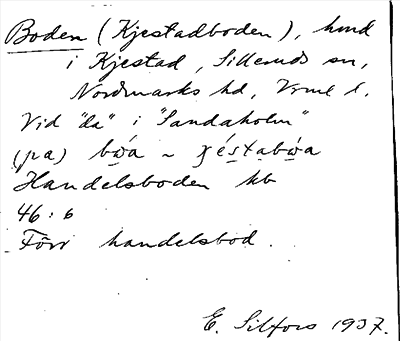 Boden (Kjestadboden), hmd
i Kjestad, Silleruds sn,
Nordmarks hd, Vrml l.
Vid "da" i "Sandaholm"
(pa) bώa ~ ɣéstabώa
Handelsboden kb
46:6
Förr handelsbod.
E. Silfors 1937.